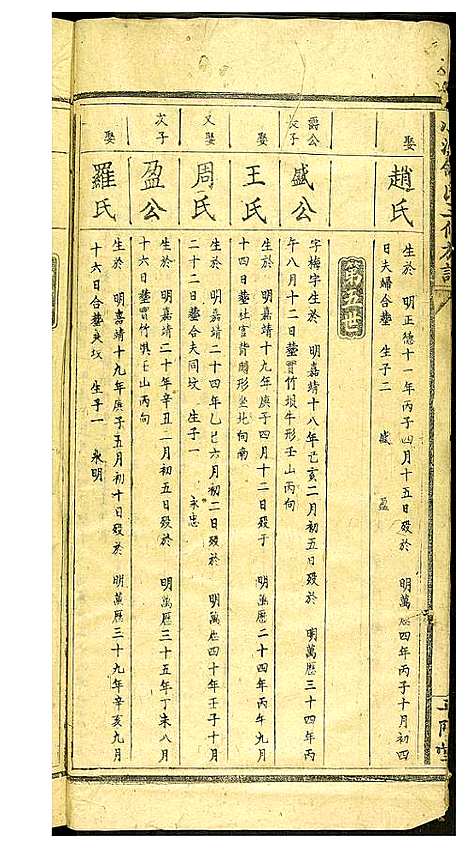 娶
趙氏
生於 明正德十一年丙子四月十五日歿於 明萬厯四年丙子十月初四
日夫婦合塟 生子二 盛 盈
第五世
爵公
長子
盛公
字梅字生於 明嘉靖十八年己亥二月初五日歿於 明萬歷三十四年丙
午八月十二日塟賈竹垻牛形壬山丙向
娶
王氏
生於 明嘉靖十九年庚子四月十二日歿于 明萬歷二十四年丙午九月
十四日塟社官背 形坐北向南
又娶
周氏
生於 明嘉靖二十四年乙巳六月初二日歿於 明萬厯四十年壬子十月
二十二日塟合夫同坟 生子一 永忠
次子
盈公
生於 明嘉靖二十年辛丑一月初五日歿於 明萬歷三十五年丁未八月
十六日塟賈竹 壬山丙向
娶
羅氏
生於 明嘉靖十九年庚子五月初十日歿於 明萬歷三十九年辛亥九月
十六日合塟夹坟 生子一 永明